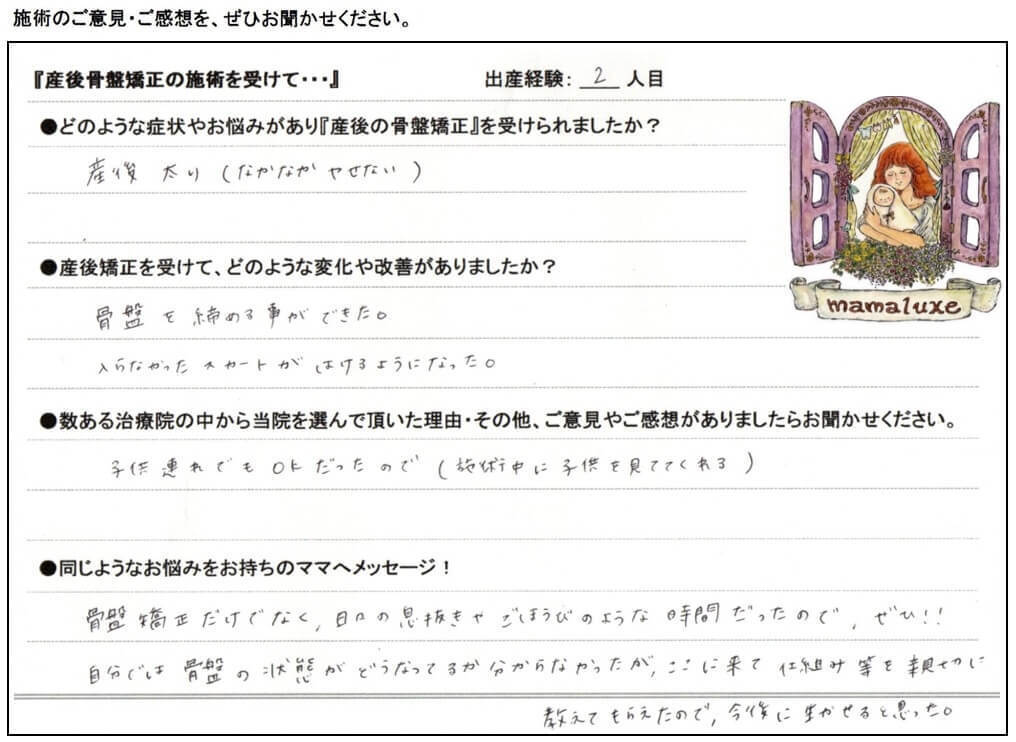 施術のご意見・ご感想を、ぜひお聞かせください。
『産後骨盤矯正の施術を受けて・・・』 出産経験: 2 人目
●どのような症状やお悩みがあり『産後の骨盤矯正』を受けられましたか？
産後太り (なかなかヤセない)
●産後矯正を受けて、どのような変化や改善がありましたか？
骨盤を締める事ができた。
入らなかったスカートがはけるようになった。
mamaluxe
●数ある治療院の中から当院を選んで頂いた理由・その他、ご意見やご感想がありましたらお聞かせください。
子供連れでもOKだったので (施術中に子供を見ててくれる)
●同じようなお悩みをお持ちのママへメッセージ！
骨盤矯正だけでなく, 日々の息抜きやごほうびのような時間だったので, ぜひ!!
自分では骨盤の状態がどうなってるか分からなかったが, ここに来て仕組み等を親切に
教えてもらえたので, 今後に生かせると思った。